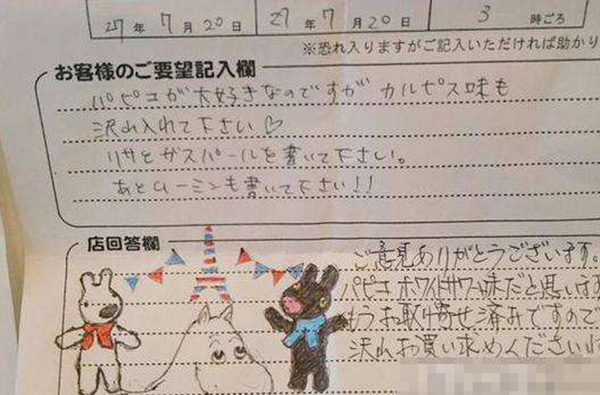 27年 7月20日 27年 7月20日 3 時ごろ
※恐れ入りますがご記入いただければ助かり
お客様のご要望記入欄
パピコが大好きなのですが カルピス味も
沢山入れて下さい♡
リサとガスパールを書いて下さい。
あとムーミンも書いて下さい!!
店回答欄
ご意見ありがとうございます。
パピコ ホワイトサワー味だと思います
もうお取り寄せ済みですので
沢山お買い求めくださいね